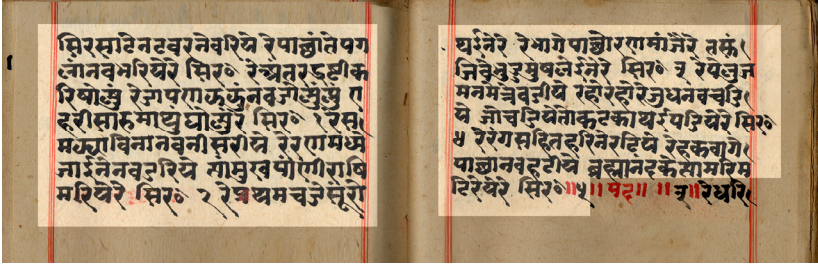 सिरसाटेनटवरनेवरिये रेपाछांतेपग
लांनवभरियेरे सिर॰ रेअंतरद्रष्टीक
रिषोलुं रेडापणझाझुंनवडोलुं ए
हरीसारुमाथुघोलुंरे सिर॰ १ रेसम
मज्याविनानवनीसरीये रेरणमध्ये
जाईनेनवडरिये त्यांमुखपांणीराषि
मरियेरे सिर॰ २ रेप्रथमचडेसूरो
थईनेरे रेभागेपाछोरणमांजैरे तेसुं
जिवेभुडुमुषलईनेरे सिर॰ ३ रेपेलुज
मनमंत्रेवडीये रहोरहोरेजुधनवचडि
ये जोचडियेतोकटकाथईपडियेरे सिर॰
४ रेरंगसहितहरिनेरटिये रेहाकवागे
पाछानवहटीये ब्रह्मानंदकेत्यांमरिम
टियेरे सिर॰ ॥५॥ पद॥ ॥३॥ रेधरि